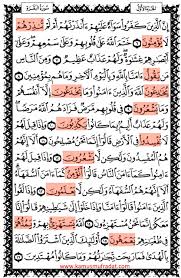 سورة البقرة
الجزء الأول
إِنَّ الَّذِينَ كَفَرُوا سَوَاءٌ عَلَيْهِمْ ءَأَنذَرْتَهُمْ أَمْ لَمْ تُنذِرْهُمْ
لَا يُؤْمِنُونَ ٦ خَتَمَ اللَّهُ عَلَىٰ قُلُوبِهِمْ وَعَلَىٰ سَمْعِهِمْ وَعَلَىٰ
أَبْصَٰرِهِمْ غِشَٰوَةٌ وَلَهُمْ عَذَابٌ عَظِيمٌ ٧ وَمِنَ النَّاسِ
مَن يَقُولُ ءَامَنَّا بِاللَّهِ وَبِالْيَوْمِ الْءَاخِرِ وَمَا هُم بِمُؤْمِنِينَ ٨
يُخَٰدِعُونَ اللَّهَ وَالَّذِينَ ءَامَنُوا وَمَا يَخْدَعُونَ إِلَّا أَنفُسَهُمْ
وَمَا يَشْعُرُونَ ٩ فِي قُلُوبِهِم مَّرَضٌ فَزَادَهُمُ اللَّهُ مَرَضًا
وَلَهُمْ عَذَابٌ أَلِيمٌ بِمَا كَانُوا يَكْذِبُونَ ١٠ وَإِذَا قِيلَ لَهُمْ
لَا تُفْسِدُوا فِي الْأَرْضِ قَالُوا إِنَّمَا نَحْنُ مُصْلِحُونَ ١١ أَلَا إِنَّهُمْ هُمُ
الْمُفْسِدُونَ وَلَٰكِن لَّا يَشْعُرُونَ ١٢ وَإِذَا قِيلَ لَهُمْ ءَامِنُوا
كَمَا ءَامَنَ النَّاسُ قَالُوا أَنُؤْمِنُ كَمَا ءَامَنَ السُّفَهَاءُ أَلَا
إِنَّهُمْ هُمُ السُّفَهَاءُ وَلَٰكِن لَّا يَعْلَمُونَ ١٣ وَإِذَا لَقُوا الَّذِينَ ءَامَنُوا
قَالُوا ءَامَنَّا وَإِذَا خَلَوْا إِلَىٰ شَيَٰطِينِهِمْ قَالُوا إِنَّا مَعَكُمْ
إِنَّمَا نَحْنُ مُسْتَهْزِءُونَ ١٤ اللَّهُ يَسْتَهْزِئُ بِهِمْ وَيَمُدُّهُمْ فِي
طُغْيَٰنِهِمْ يَعْمَهُونَ ١٥ أُولَٰئِكَ الَّذِينَ اشْتَرَوُا الضَّلَٰلَةَ
www.kamusmufradat.com